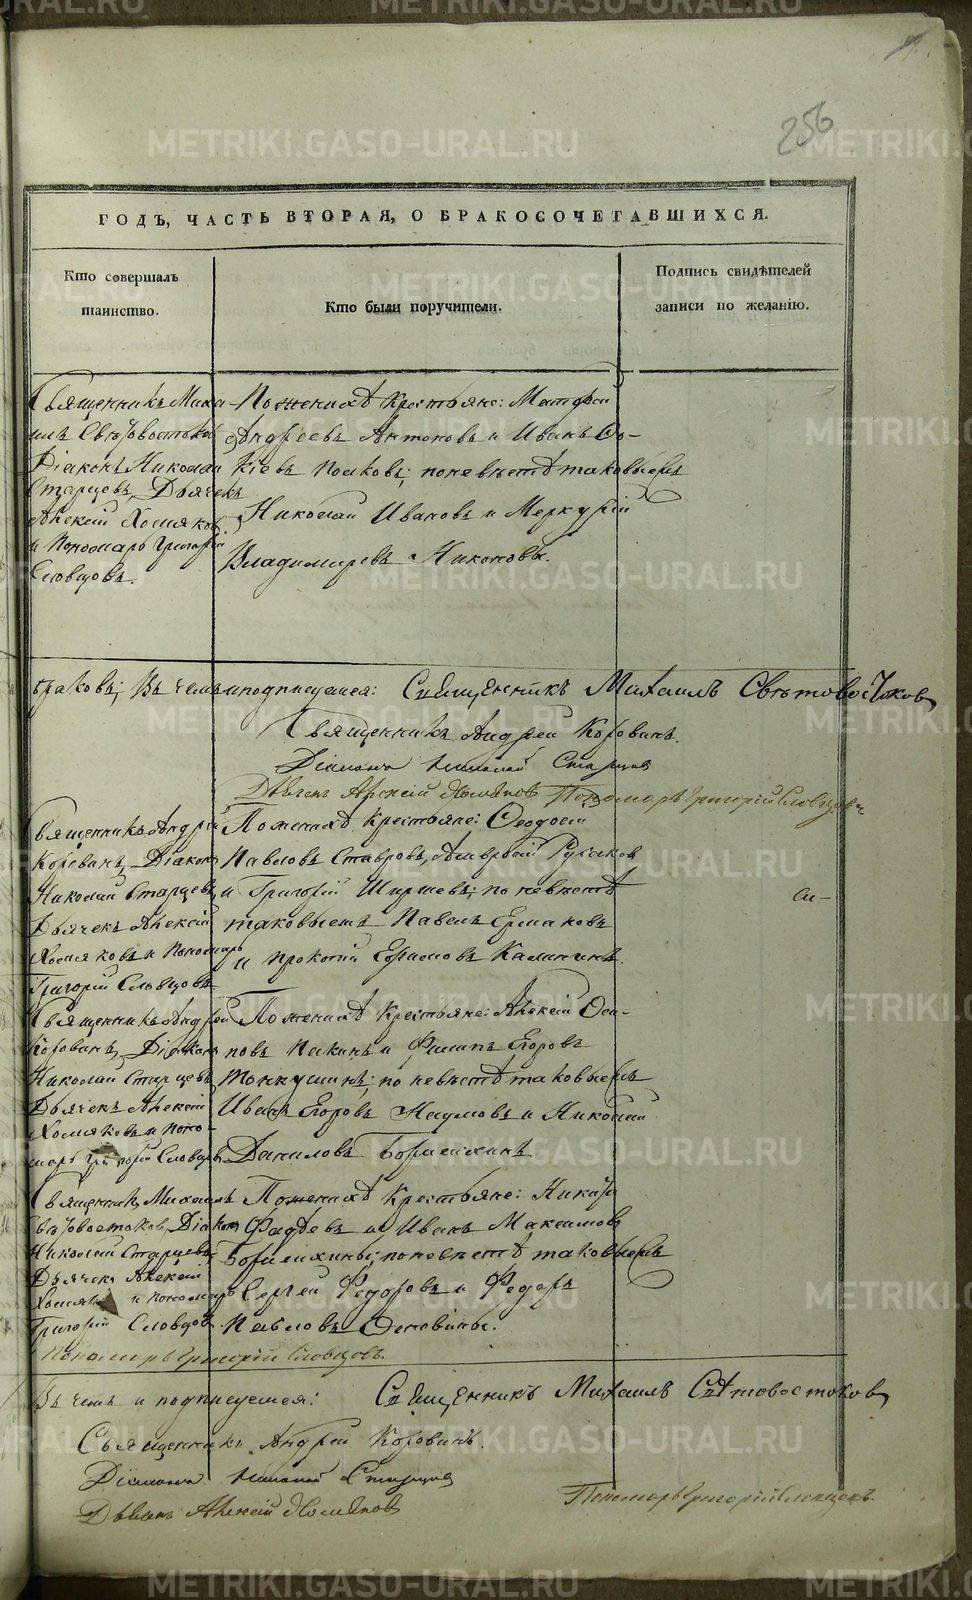 256
ГОДЪ, ЧАСТЬ ВТОРАЯ, О БРАКОСОЧЕТАВШИХСЯ.
Кто совершалъ
таинство.
Кто были поручители.
Подпись свидѣтелей
записи по желанію.
Священникъ Миха-
илъ Свѣтовостоковъ
Діаконъ Николай
Старцевъ, Дьячекъ
Алексій Хомяковъ
и Пономарь Григорій
Словцовъ.
По женихѣ Крестьяне: Матфей
Андреевъ Антоновъ и Иванъ
по невѣстѣ таковыежъ
Николай Ивановъ и Меркурій
Владимировъ Никоновы.
браковъ; Въ чемъ и подписуемся: Священникъ Михаилъ Свѣтовостоковъ
Священникъ Андрей Коровинъ.
Діаконъ Николай Старцевъ
Дьячекъ Алексій Хомяковъ Пономарь Григорій Словцовъ
Священникъ Андрей
Коровинъ, Діаконъ
Николай Старцевъ,
Дьячекъ Алексій
Хомяковъ и Пономарь
Григорій Словцовъ
По женихѣ Крестьяне: Феодосій
Павловъ Ставровъ,
и Григорій Ширшевъ; по невѣстѣ
таковыежъ Павелъ Ермаковъ
и Прокопій Ефимовъ Калининъ.
Священникъ Андрей
Коровинъ, Діаконъ
Николай Старцевъ
Дьячекъ Алексій
Хомяковъ и Поно-
марь Григорій Словцовъ
По женихѣ Крестьяне: Алексій Оси-
повъ и Филипъ Егоровъ
по невѣстѣ таковыежъ
Иванъ Егоровъ Наумовъ и Николай
Даниловъ
Священникъ Михаилъ
Свѣтовостоковъ, Діаконъ
Николай Старцевъ
Дьячекъ Алексій
и Пономарь
Григорій Словцовъ.
По женихѣ Крестьяне:
Фадѣевъ и Иванъ Максимовъ
по невѣстѣ таковыежъ
Сергей Федоровъ и Федоръ
Павловъ
Пономарь Григорій Словцовъ.
Въ чемъ и подписуемся: Священникъ Михаилъ Свѣтовостоковъ
Священникъ Андрей Коровинъ.
Діаконъ Николай Старцевъ
Дьячекъ Алексій Хомяковъ
Пономарь Григорій Словцовъ.
METRIKI.GASO-URAL.RU